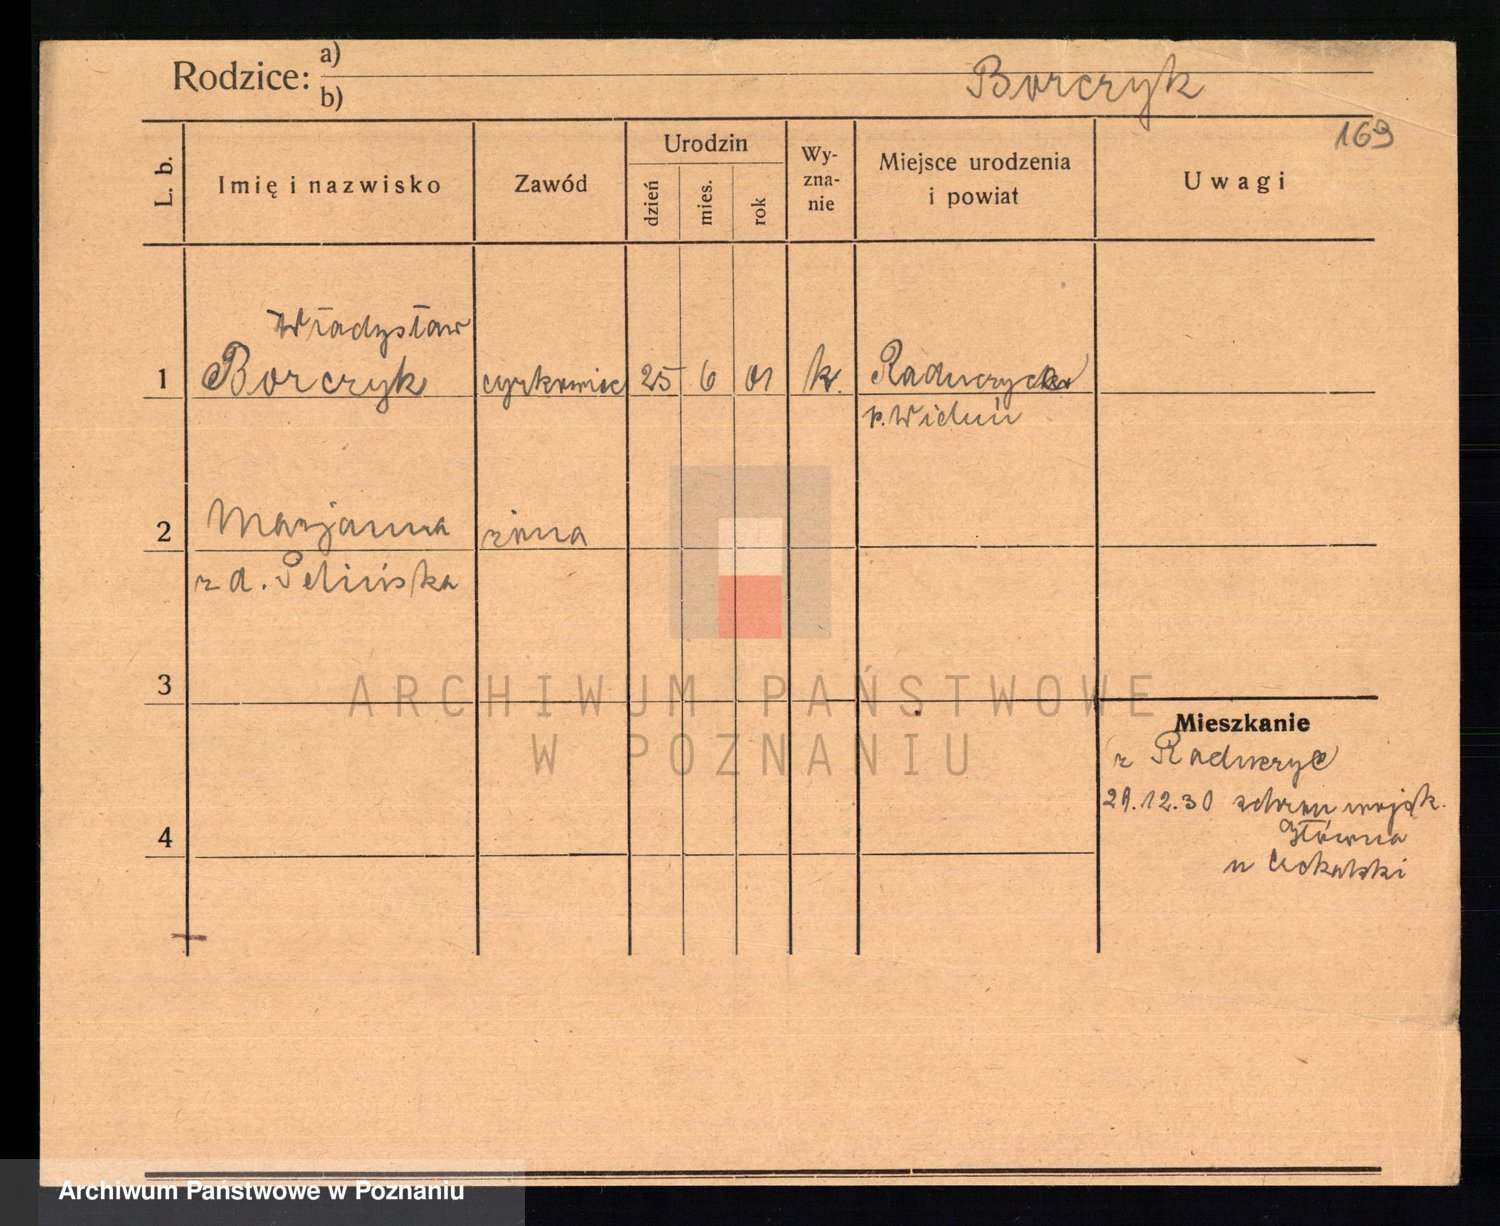 Rodzice: a)
b)
Borczyk
169
L. b.
Imię i nazwisko
Zawód
Urodzin
dzień
mies.
rok
Wy-
zna-
nie
Miejsce urodzenia
i powiat
Uwagi
Władysław
1 Borczyk
25 6 01 k.
p. Wieluń
2 Marjanna żona
z d. Pelińska
3
4
Mieszkanie
z
29.12.30 schron wojsk.
Główna
ARCHIWUM PAŃSTWOWE
W POZNANIU
Archiwum Państwowe w Poznaniu